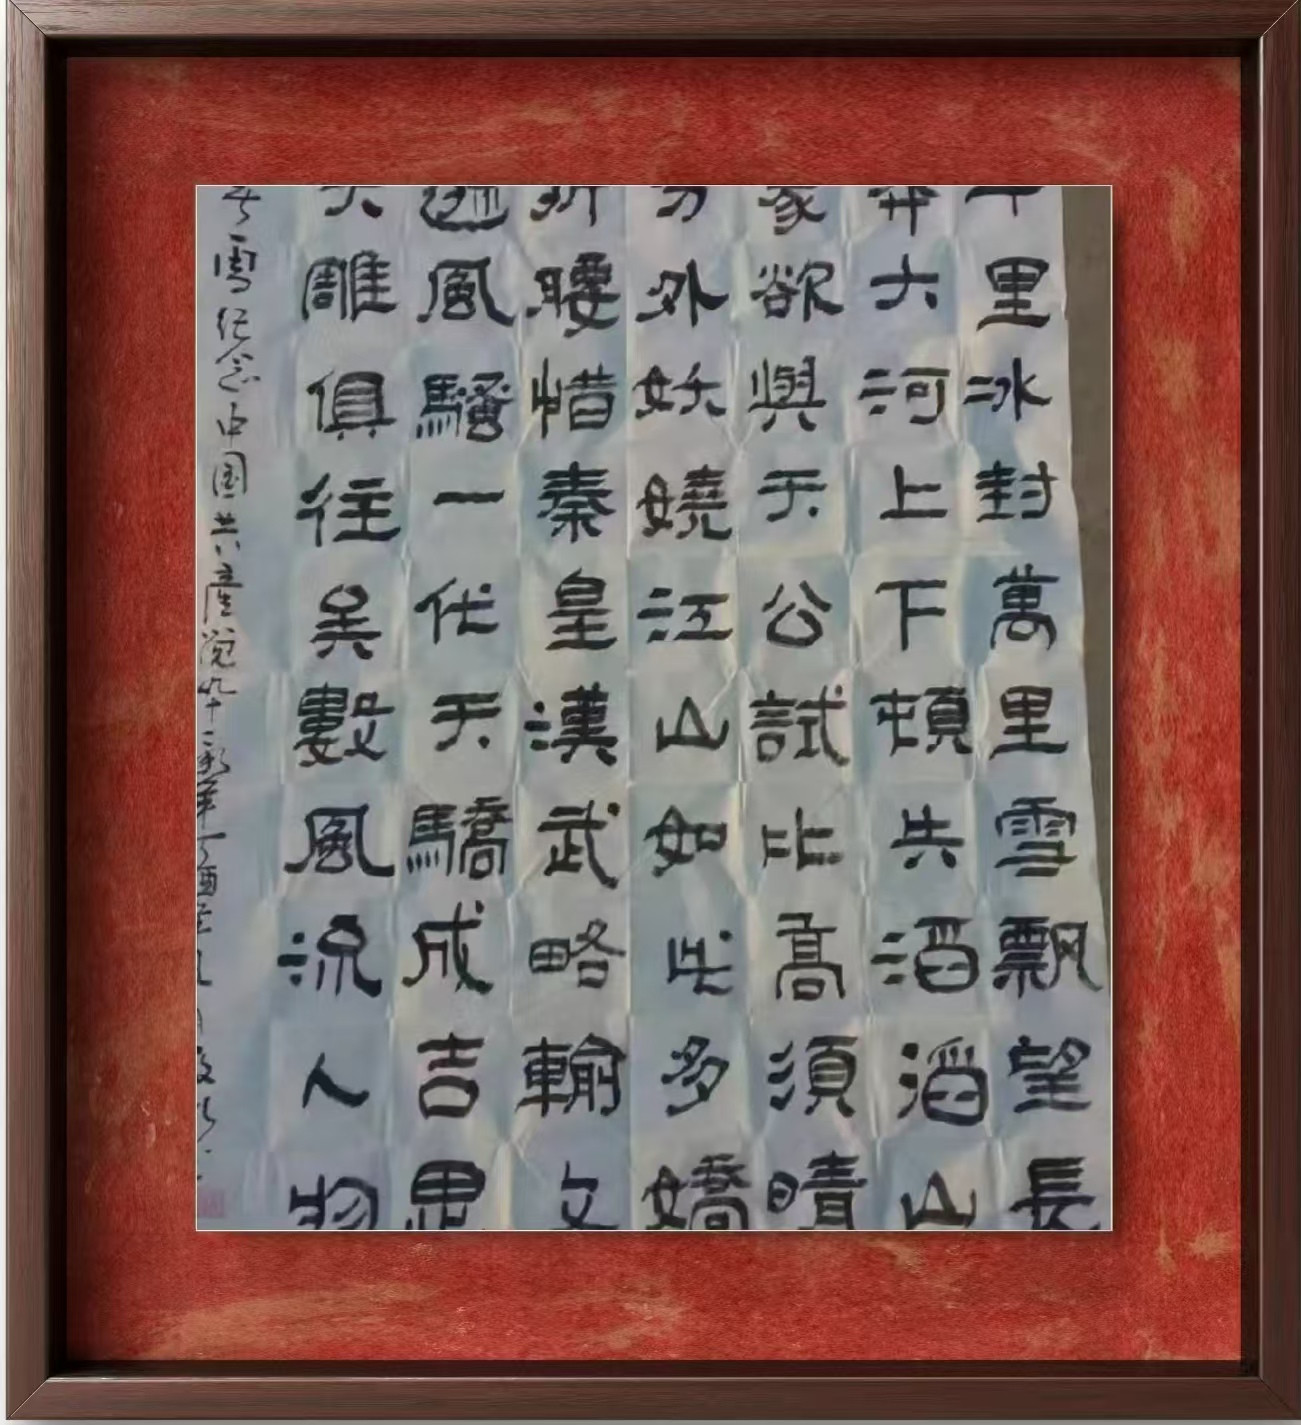 千里冰封萬里雪飄望長
莽大河上下頓失滔滔山
象欲與天公試比高須晴
分外妖嬈江山如此多嬌
折腰惜秦皇漢武略輸文
遜風騷一代天驕成吉思
大雕俱往矣數風流人物
雪纪念中国共產党九十 年丁酉